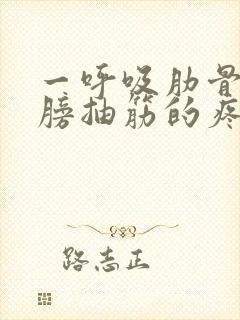 一呼吸肋骨
膀抽筋的疼
路志正